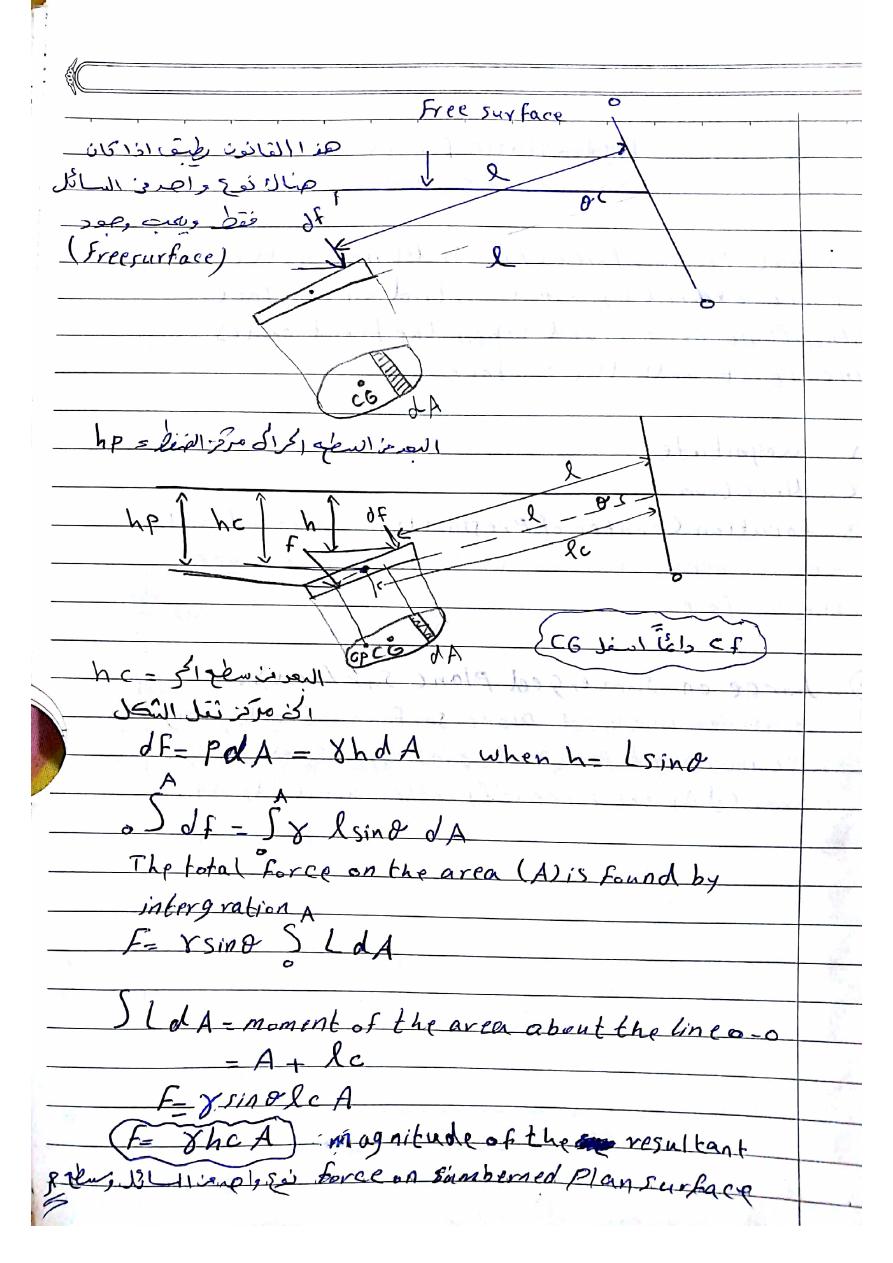 Free surface
o
هذا القانون يطبق اذا كان
هناك نوع واحد من السائل
فقط ويجب وجود
(free surface)
l
θ
df
l
o
CG
dA
hp = البعد من السطح الحر الى مركز الضغط
l
hp
hc
h
df
θ
l
f
lc
o
cf دائماً اسفل CG
CP CG
dA
hc = البعد من سطح الحر
الى مركز ثقل الشكل
dF = PdA = γhdA when h = Lsinθ
0∫A df = 0∫A γ lsinθ dA
The total force on the area (A) is found by
intergration
F = γsinθ 0∫A LdA
∫LdA = moment of the area about the line o-o
= A + lc
F = γsinθlcA
F = γhcA : magnitude of the resultant
force on sumberned Plan surface نوع واحد من السائل وسطح